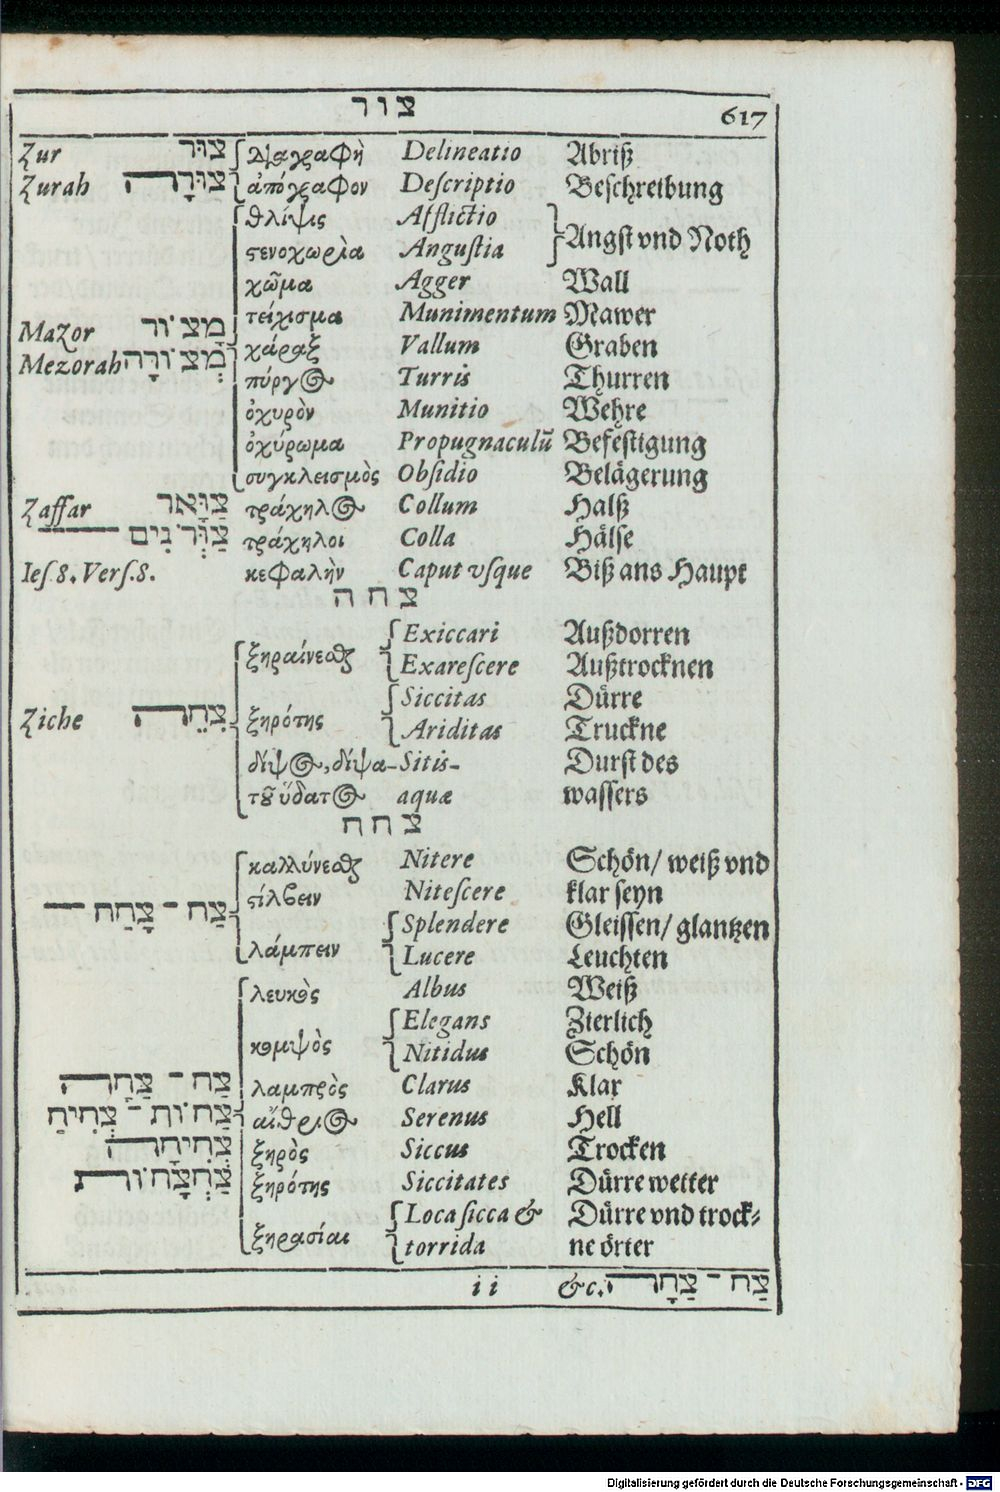 צור 617
Zur צוּר διαγραφὴ Delineatio Abriß
Zurah צוּרָה ἀπόγραφον Deſcriptio Beſchreibung
θλίψις Afflictio
ϛενοχωρία Anguſtia Angſt vnd Noth
χῶμα Agger Wall
τείχισμα Munimentum Mawer
Mazor מָצוֹר χάραξ Vallum Graben
Mezorah מְצוֹרָה πύργος Turris Thurren
ὀχυρὸν Munitio Wehre
ὀχύρωμα Propugnaculū Befeſtigung
συγκλεισμὸς Obſidio Belägerung
Zaffar צַוָּאר τράχηλος Collum Halß
צַוְּרֹנִים τράχηλοι Colla Hälſe
Ieſ. 8. Verſ. 8. κεφαλὴν Caput vſque Biß ans Haupt
צחה
Exiccari Außdorren
ξηραίνεσθαι Exareſcere Außtrocknen
Siccitas Dürre
Ziche צִחֵה ξηρότης Ariditas Truckne
δίψος, δίψα Sitis Durſt des
τοῦ ὕδατος aquæ waſſers
צחח
καλλύνεσθαι Nitere Schön/ weiß vnd
ϛίλβειν Niteſcere klar ſeyn
צַח - צָחַח Splendere Gleiſſen/ glantzen
λάμπειν Lucere Leuchten
λευκὸς Albus Weiß
Elegans Zierlich
κομψὸς Nitidus Schön
צַח - צַחָה λαμπρὸς Clarus Klar
צַחוֹת - צְחִיחַ αἴθριος Serenus Hell
צְחִיחָה ξηρὸς Siccus Trocken
צַחְצָחוֹת ξηρότης Siccitates Dürre wetter
Loca ſicca & Dürre vnd trock⸗
ξηρασίαι torrida ne örter
ii &c. צַח - צַחָה
Digitalisierung gefördert durch die Deutsche Forschungsgemeinschaft - DFG